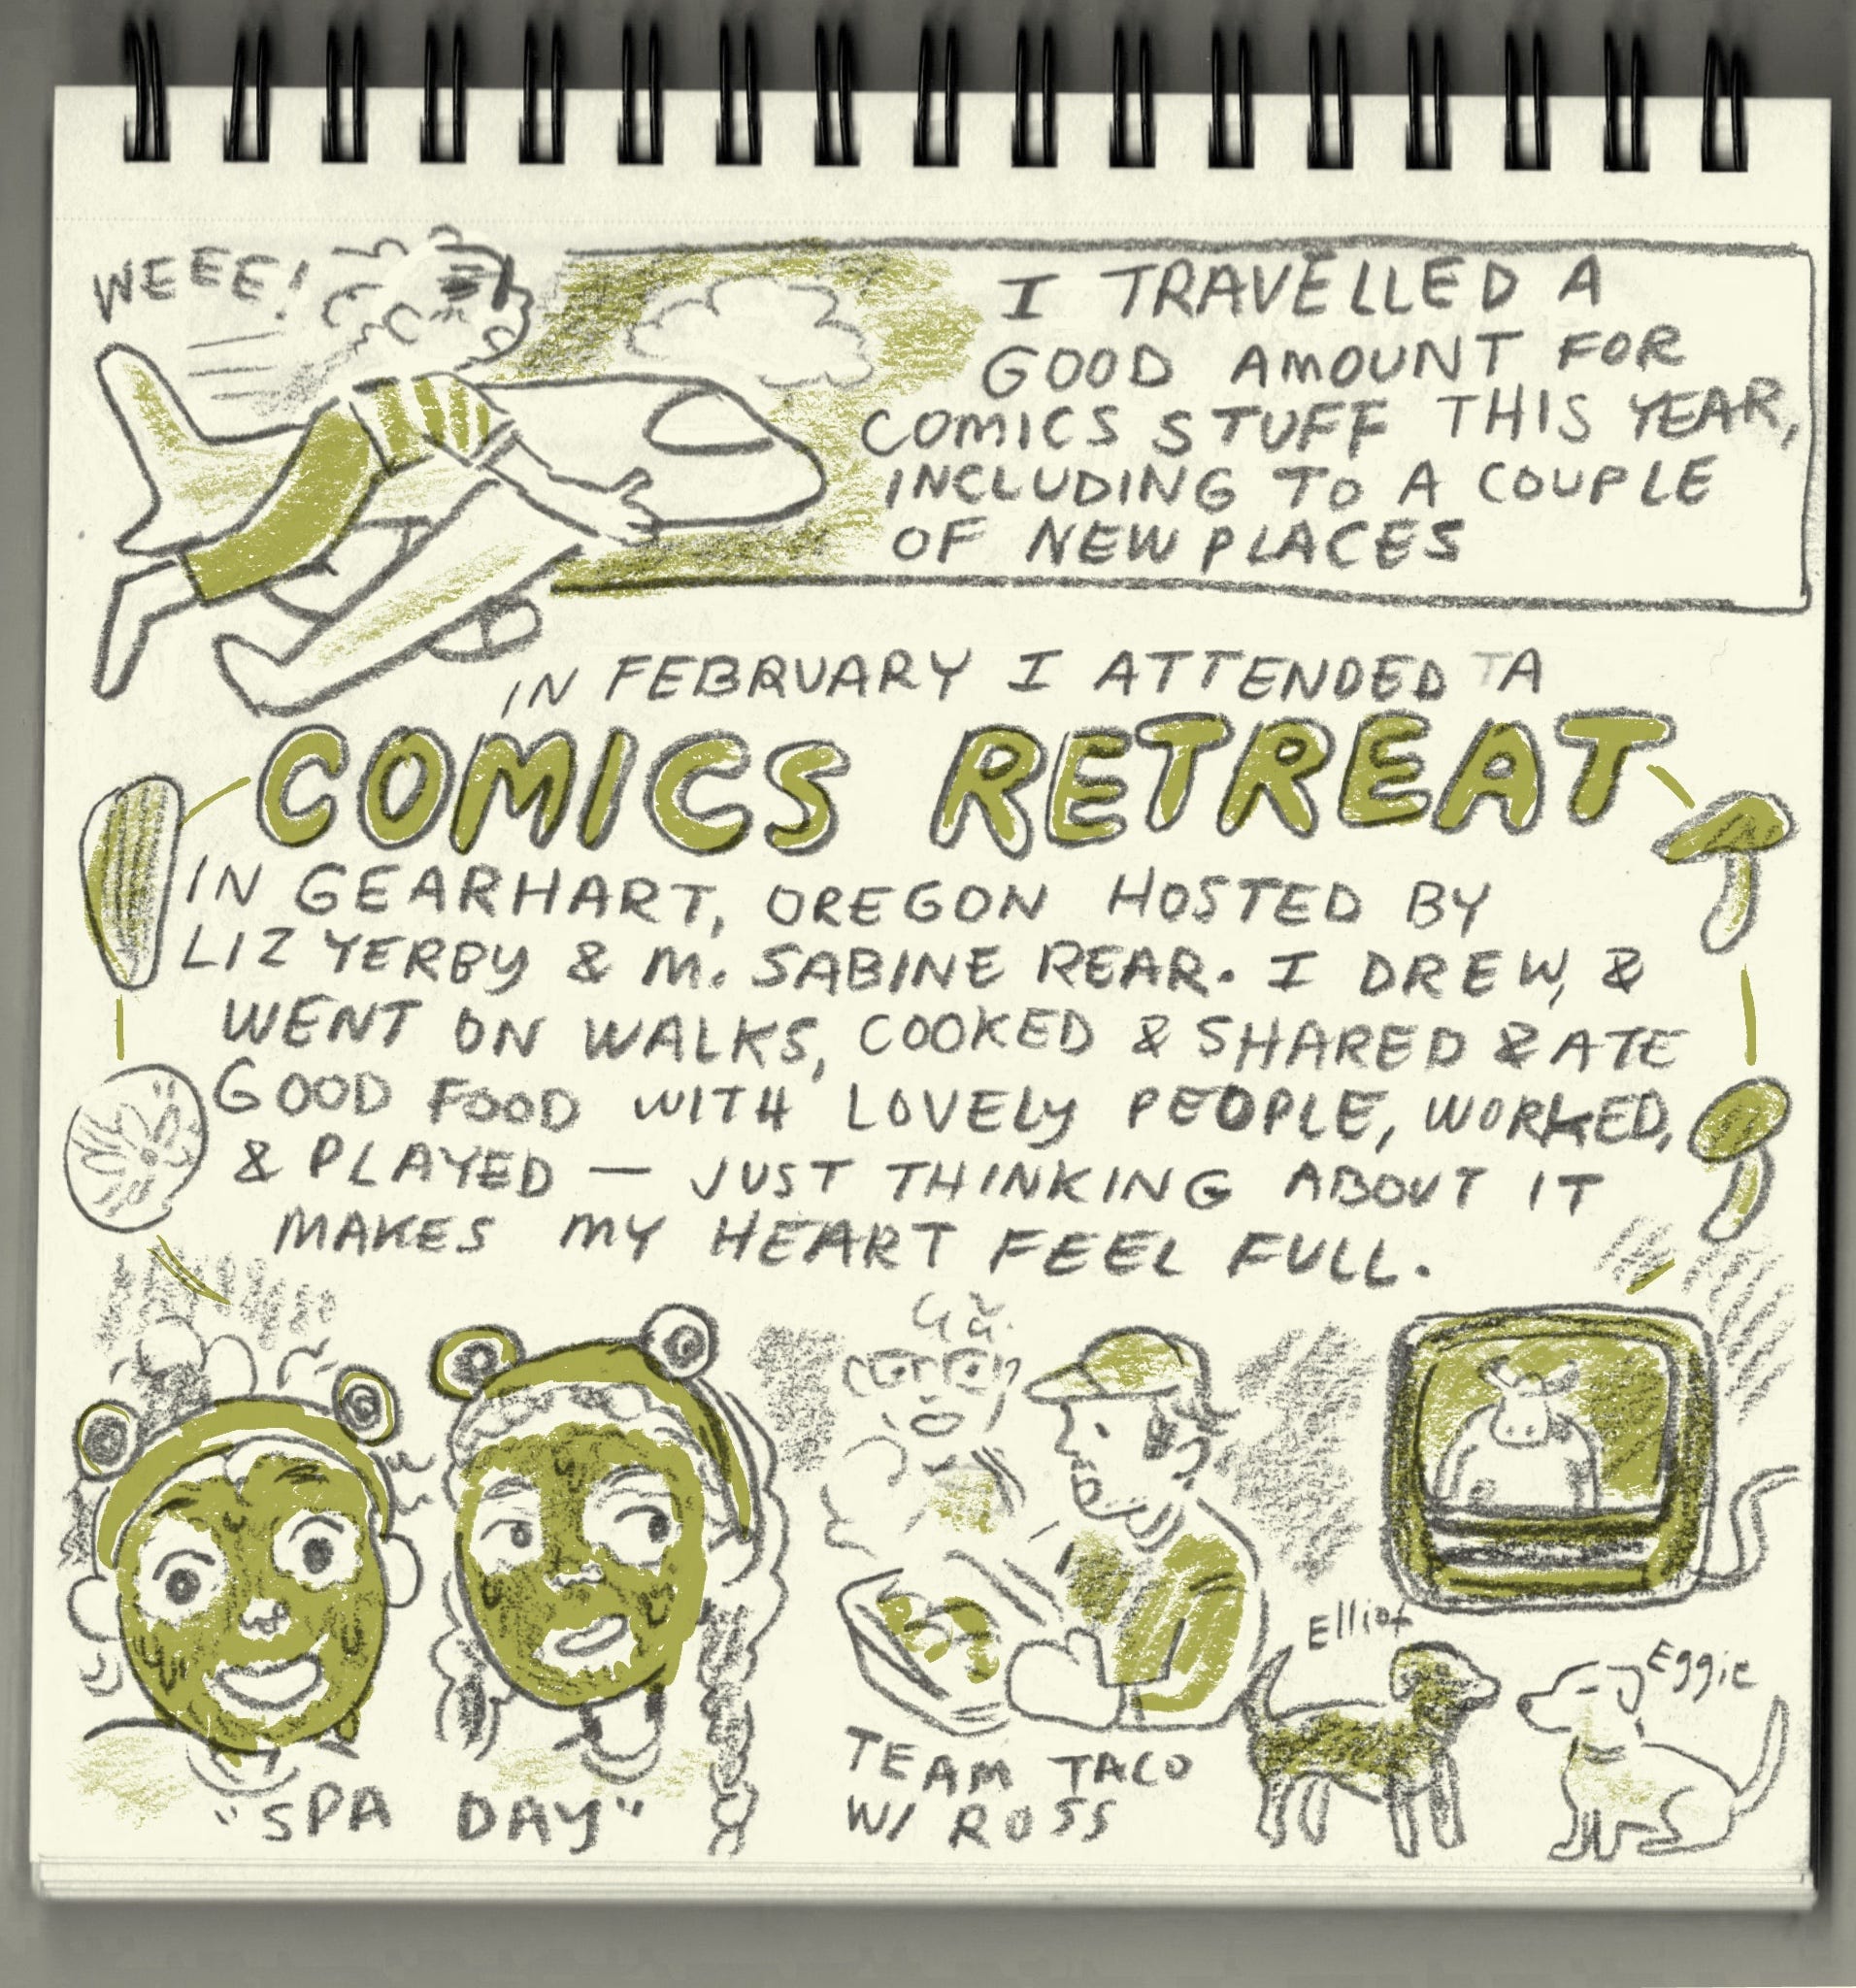 WEEE!
I TRAVELLED A
GOOD AMOUNT FOR
COMICS STUFF THIS YEAR,
INCLUDING TO A COUPLE
OF NEW PLACES
IN FEBRUARY I ATTENDED A
COMICS RETREAT
IN GEARHART, OREGON HOSTED BY
LIZ YERBY & M. SABINE REAR. I DREW, &
WENT ON WALKS, COOKED & SHARED & ATE
GOOD FOOD WITH LOVELY PEOPLE, WORKED,
& PLAYED — JUST THINKING ABOUT IT
MAKES MY HEART FEEL FULL.
"SPA DAY"
TEAM TACO
W/ ROSS
Elliot
Eggie